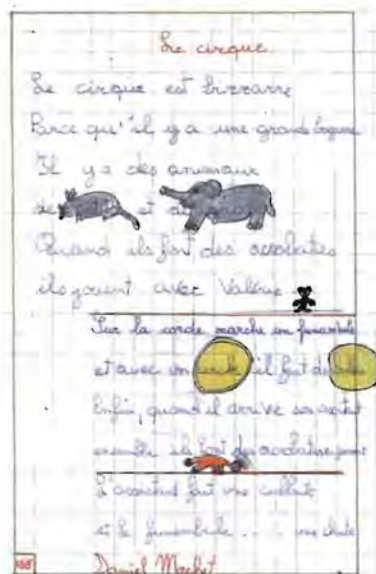 Le cirque
Le cirque est bizzarre
Parce qu'il y a une grande
Il y a des animaux
de et de
Quand ils font des acrobaties
ils jouent avec Valérie
Sur la corde marche un funambule
et avec un il fait du
Enfin, quand il arrive son assistant
ensemble ils font des acrobaties
L'assistant fait une culbute
et le funambule . . . une chute
Daniel Machet